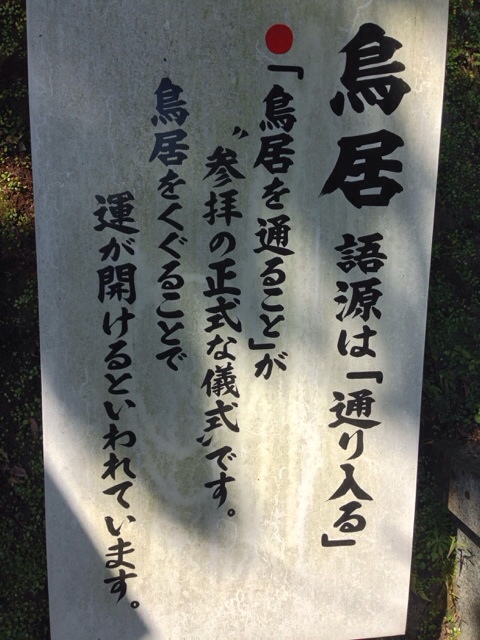 鳥居 語源は「通り入る」
「鳥居を通ること」が
〝参拝の正式な儀式〟です。
鳥居をくぐることで
運が開けるといわれています。